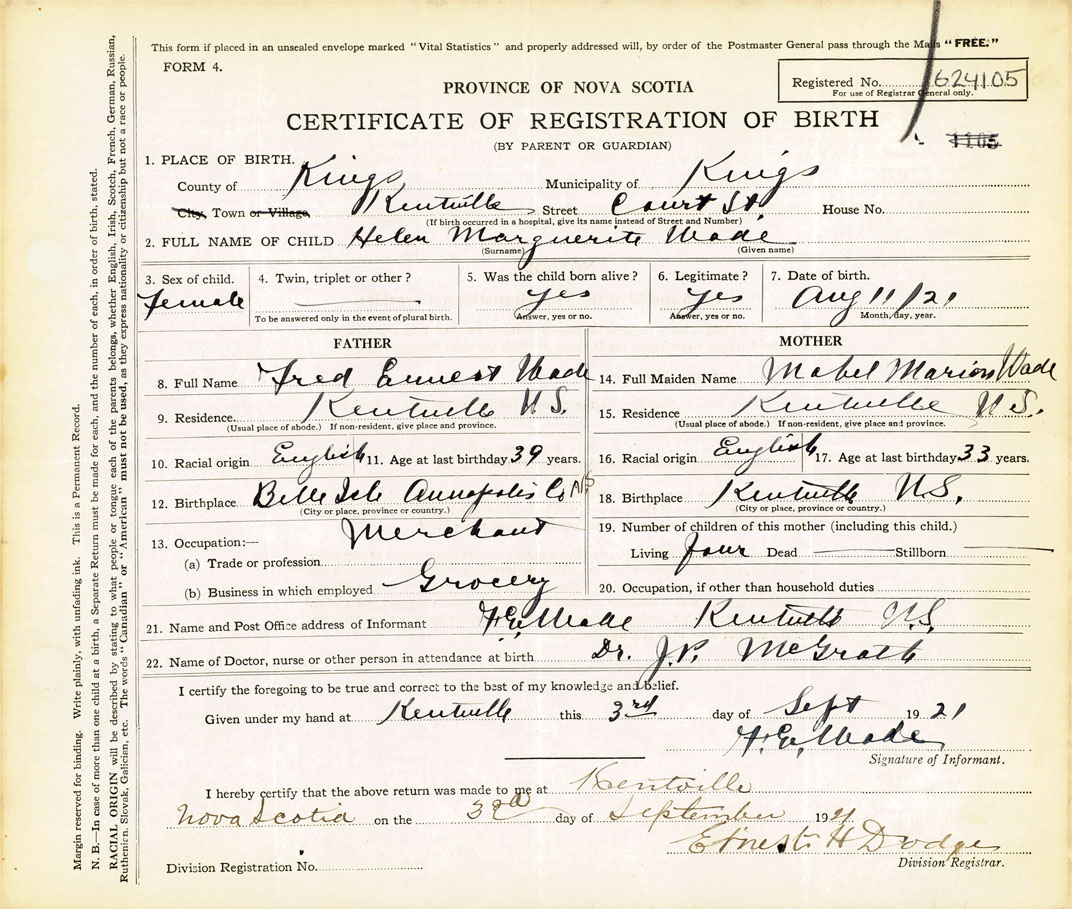 This form if placed in an unsealed envelope marked "Vital Statistics" and properly addressed will, by order of the Postmaster General pass through the Mails "FREE."
FORM 4.
Registered No. 624105
For use of Registrar General only.
PROVINCE OF NOVA SCOTIA
CERTIFICATE OF REGISTRATION OF BIRTH
1105
(BY PARENT OR GUARDIAN)
1. PLACE OF BIRTH.
County of Kings Municipality of Kings
City, Town or Village Kentville Street Court St. House No.
(If birth occurred in a hospital, give its name instead of Street and Number)
2. FULL NAME OF CHILD Helen Marguerite Wade
(Surname) (Given name)
3. Sex of child. 4. Twin, triplet or other? 5. Was the child born alive? 6. Legitimate? 7. Date of birth.
female yes yes Aug 11/21
To be answered only in the event of plural birth. Answer, yes or no. Answer, yes or no. Month, day, year.
FATHER MOTHER
8. Full Name Fred Ernest Wade 14. Full Maiden Name Mabel Marion Wade
9. Residence. Kentville N.S. 15. Residence Kentville N.S.
(Usual place of abode.) If non-resident, give place and province. (Usual place of abode.) If non-resident, give place and province.
10. Racial origin English 11. Age at last birthday 39 years. 16. Racial origin English 17. Age at last birthday 33 years.
12. Birthplace Belle Isle Annapolis Co NS 18. Birthplace Kentville N.S.
(City or place, province or country.) (City or place, province or country.)
13. Occupation:— Merchant 19. Number of children of this mother (including this child.)
(a) Trade or profession Living four Dead Stillborn
(b) Business in which employed Grocery 20. Occupation, if other than household duties
21. Name and Post Office address of Informant F.E. Wade Kentville N.S.
22. Name of Doctor, nurse or other person in attendance at birth Dr. J.P. McGrath
I certify the foregoing to be true and correct to the best of my knowledge and belief.
Given under my hand at Kentville this 3rd day of Sept 1921
F.E. Wade
Signature of Informant.
I hereby certify that the above return was made to me at Kentville
Nova Scotia on the 3rd day of September 1921
Ernest H Dodge
Division Registrar No. Division Registrar.
Margin reserved for binding. Write plainly, with unfading ink. This is a Permanent Record.
N. B.—In case of more than one child at a birth, a Separate Return must be made for each, and the number of each, in order of birth, stated.
RACIAL ORIGIN will be described by stating to what people or tongue each of the parents belongs, whether English, Irish, Scotch, French, German, Russian,
Ruthenian, Slovak, Galician, etc. The words "Canadian" or "American" must not be used, as they express nationality or citizenship but not a race or people.